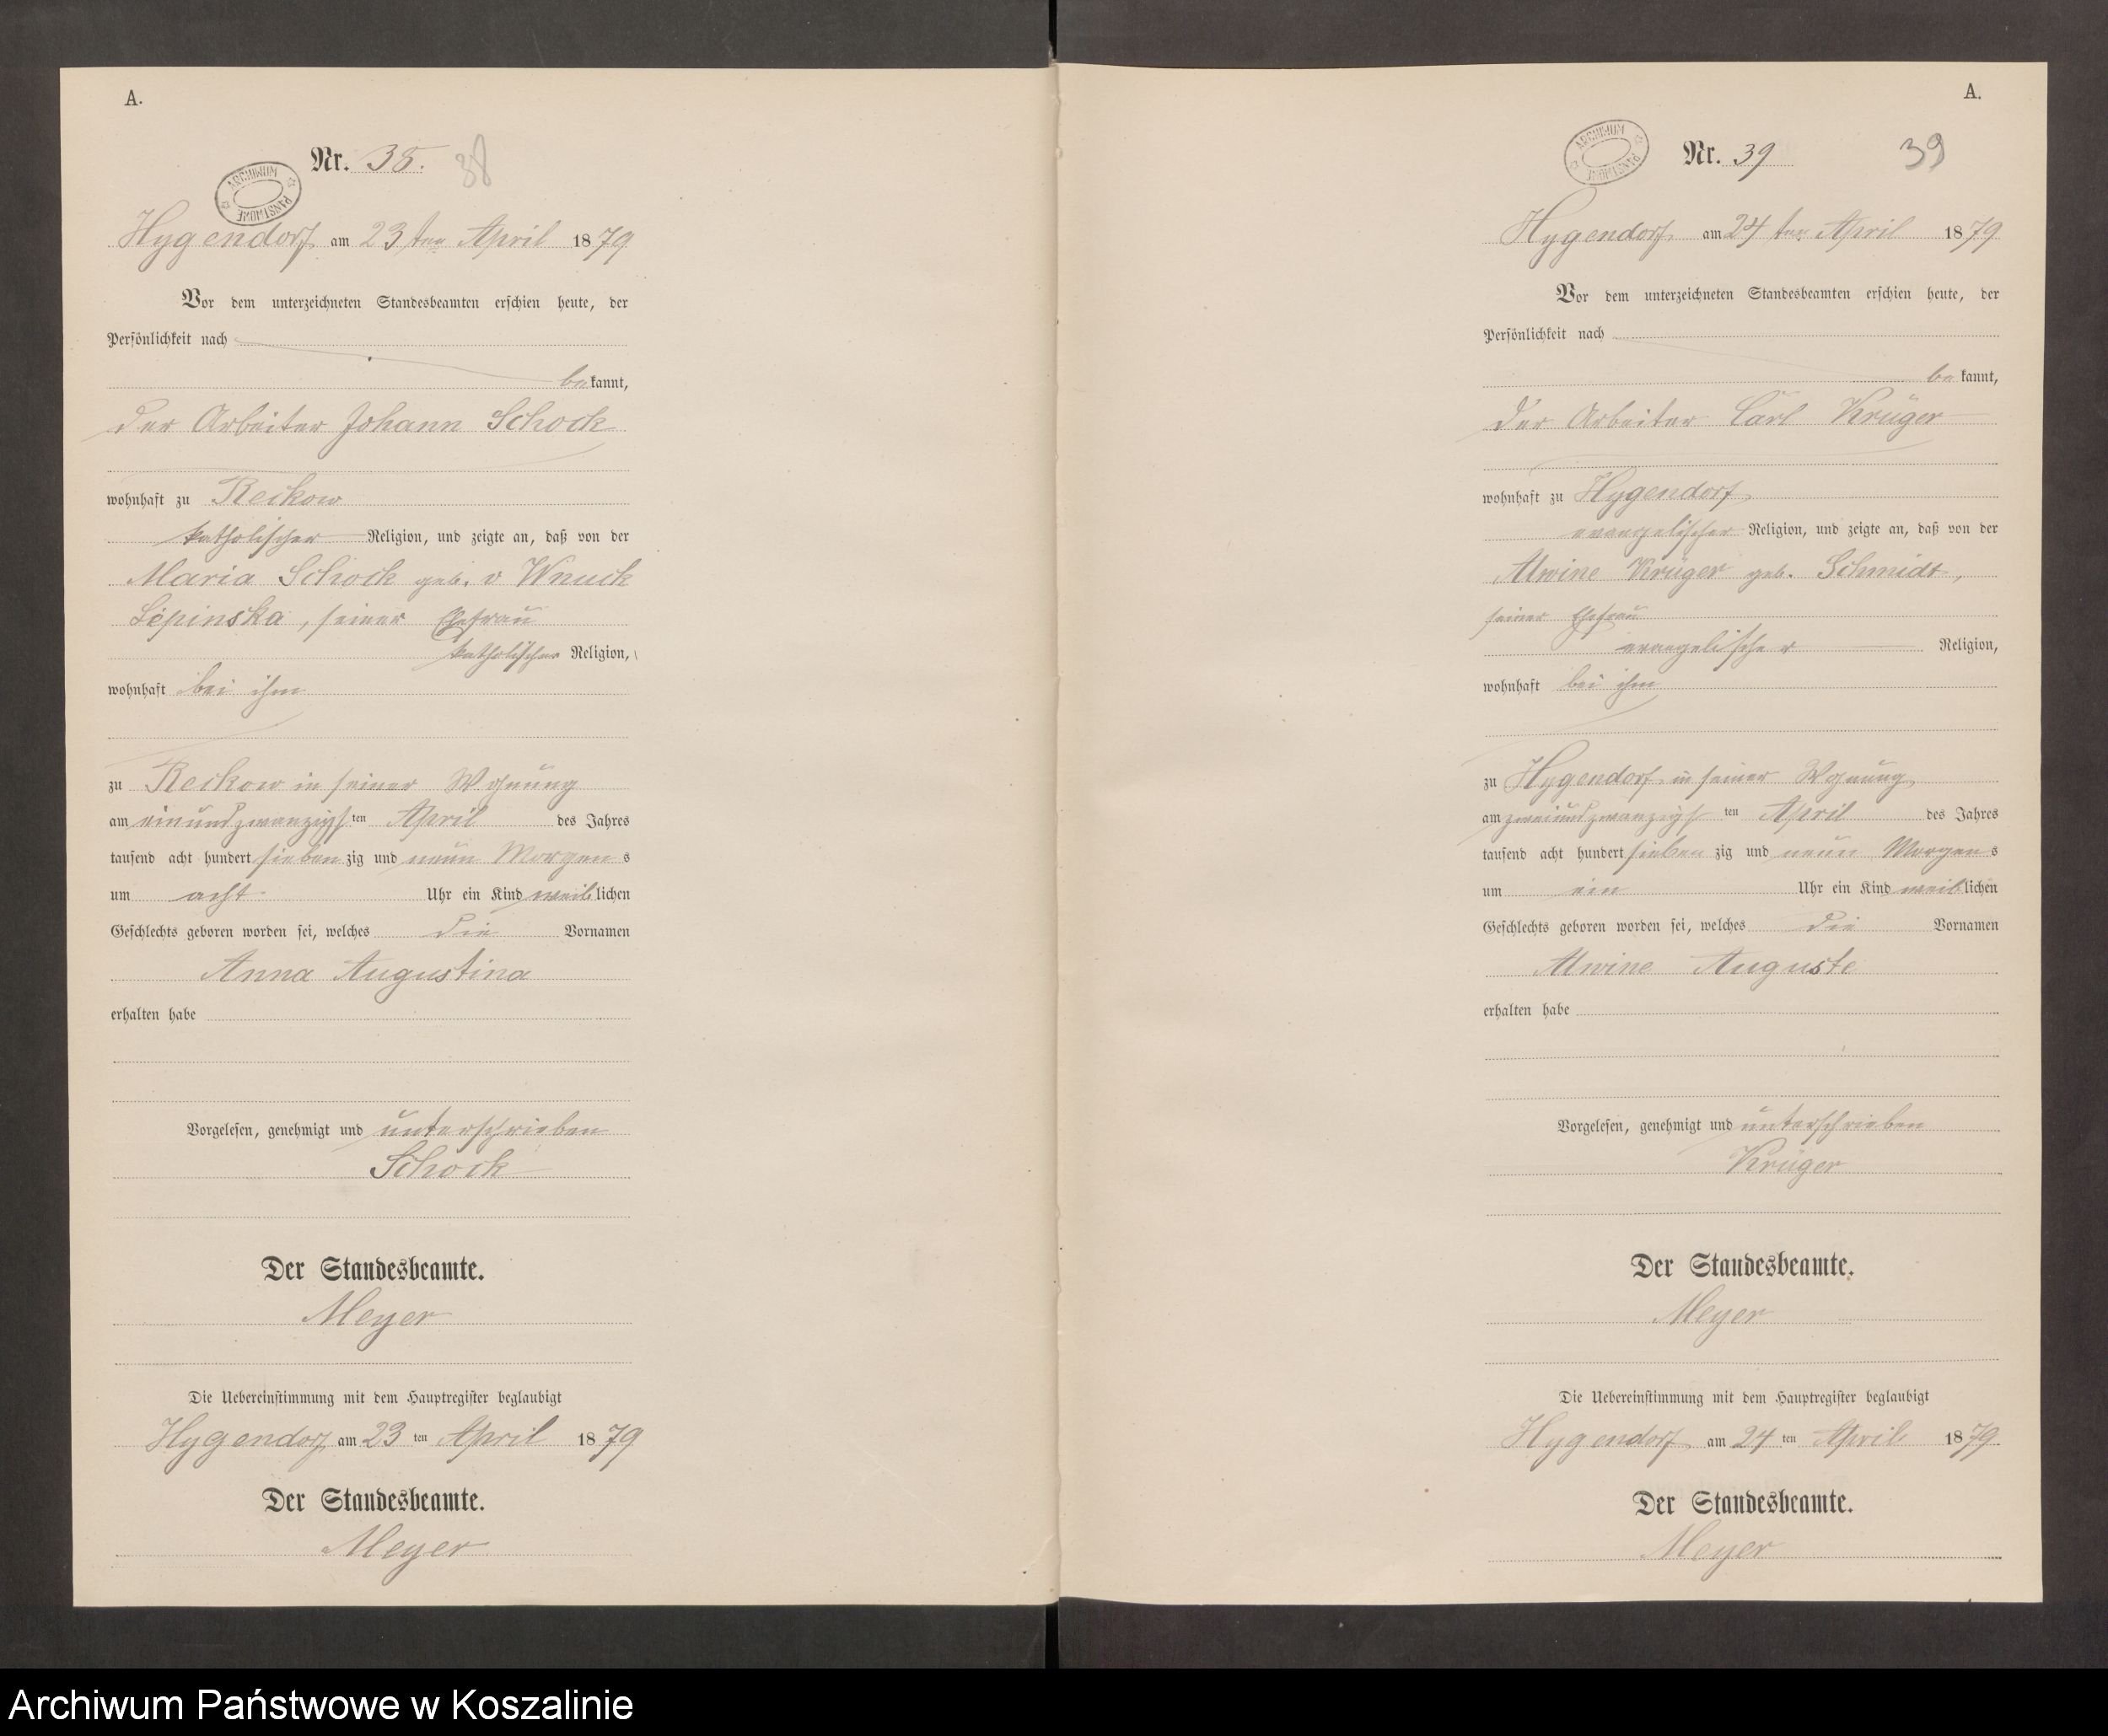 A.
Nr. 38.
38
ARCHIWUM PAŃSTWOWE
Hygendorf am 23 ten April 1879
Vor dem unterzeichneten Standesbeamten erschien heute, der
Persönlichkeit nach
bekannt,
der Arbeiter Johann Schock
wohnhaft zu Reckow
katholischer Religion, und zeigte an, daß von der
Maria Schock geb. v Wnuck
Lipinska, seiner Ehefrau
katholischer Religion,
wohnhaft bei ihm
zu Reckow in seiner Wohnung
am einundzwanzigsten April des Jahres
tausend acht hundert siebenzig und neun Morgens
um acht Uhr ein Kind weiblichen
Geschlechts geboren worden sei, welches die Vornamen
Anna Augustina
erhalten habe
Vorgelesen, genehmigt und unterschrieben
Schock
Der Standesbeamte.
Meyer
Die Uebereinstimmung mit dem Hauptregister beglaubigt
Hygendorf am 23 ten April 1879
Der Standesbeamte.
Meyer
A.
ARCHIWUM PAŃSTWOWE
Nr. 39
39
Hygendorf am 24 ten April 1879
Vor dem unterzeichneten Standesbeamten erschien heute, der
Persönlichkeit nach
bekannt,
der Arbeiter Carl Krüger
wohnhaft zu Hygendorf
evangelischer Religion, und zeigte an, daß von der
Alwine Krüger geb. Schmidt,
seiner Ehefrau
evangelischer Religion,
wohnhaft bei ihm
zu Hygendorf in seiner Wohnung
am zweiundzwanzigsten April des Jahres
tausend acht hundert siebenzig und neun Morgens
um ein Uhr ein Kind weiblichen
Geschlechts geboren worden sei, welches die Vornamen
Alwine Auguste
erhalten habe
Vorgelesen, genehmigt und unterschrieben
Krüger
Der Standesbeamte.
Meyer
Die Uebereinstimmung mit dem Hauptregister beglaubigt
Hygendorf am 24 ten April 1879
Der Standesbeamte.
Meyer
Archiwum Państwowe w Koszalinie